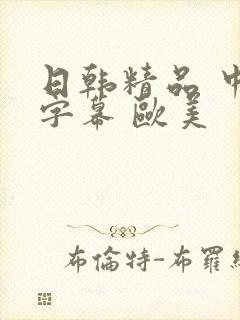 日韩精品 中
字幕 歐美
布倫特-布羅